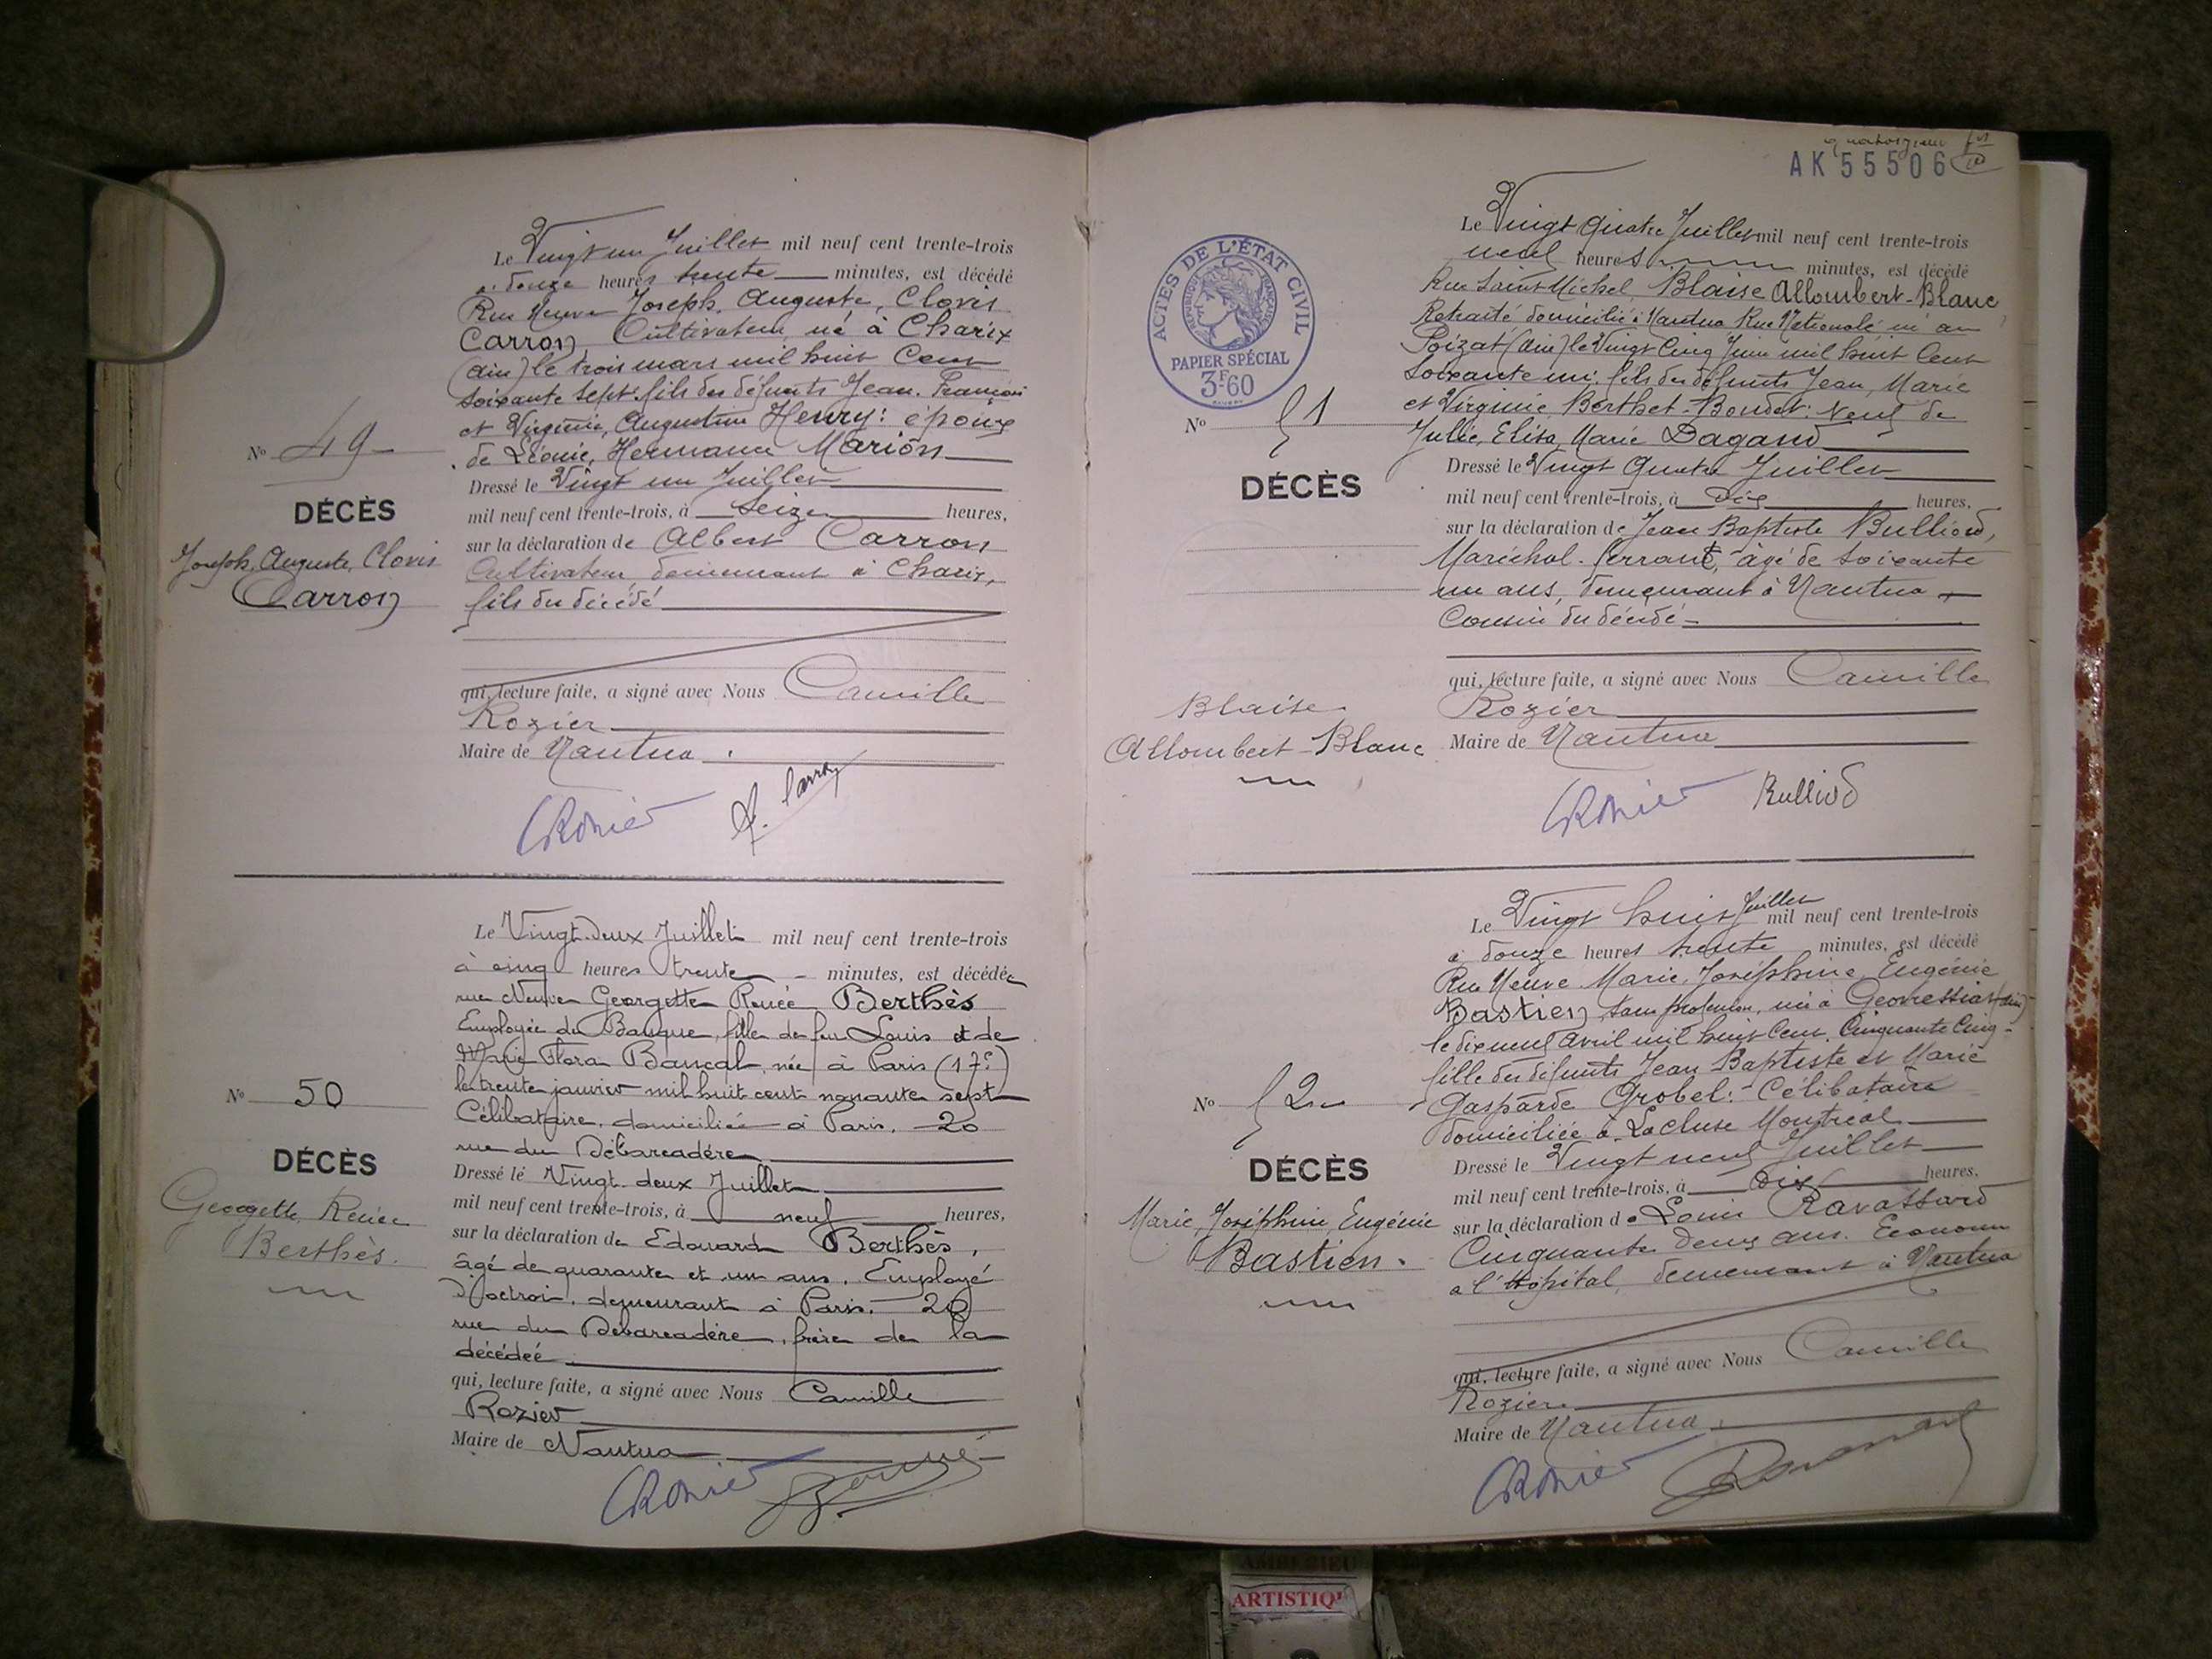 Le Vingt un Juillet mil neuf cent trente-trois
à douze heures trente minutes, est décédé
Rue Neuve Joseph, Auguste, Clovis
Carron Cultivateur, né à Charix
(ain) le trois mars mil huit Cent
soixante sept: fils des défunts Jean. François
et Virginie, Augustine Henry: époux
de Léonie, Hermance Marion
Nº 49
DÉCÈS
Joseph, Auguste, Clovis
Carron
Dressé le Vingt un Juillet
mil neuf cent trente-trois, à Seize heures,
sur la déclaration de Albert Carron
Cultivateur, demeurant à Charix,
fils du décédé
qui, lecture faite, a signé avec Nous Camille
Rozier
Maire de Nantua.
CRozier A. Carron
Le Vingt-deux Juillet mil neuf cent trente-trois
à cinq heures trente minutes, est décédée
rue Neuve Georgette Renée Berthès
Employée de Banque, fille de feu Louis et de
Marie Flora Bancal, née à Paris (17e)
le trente janvier mil huit cent nonante sept
Célibataire, domiciliée à Paris, 20
rue du Débarcadère
Nº 50
DÉCÈS
Georgette Renée
Berthès.
Dressé le Vingt-deux Juillet
mil neuf cent trente-trois, à neuf heures,
sur la déclaration de Edouard Berthès,
âgé de quarante et un ans, Employé
d'octroi, demeurant à Paris, 20
rue du Débarcadère, frère de la
décédeé
qui, lecture faite, a signé avec Nous Camille
Rozier
Maire de Nantua
CRozier
quatorzième
AK 55506
ACTES DE L'ÉTAT CIVIL
RÉPUBLIQUE FRANÇAISE
PAPIER SPÉCIAL
3F60
Le Vingt quatre Juillet mil neuf cent trente-trois
neuf heures minutes, est décédé
Rue Saint Michel, Blaise Allombert-Blanc
Retraité domicilié à Nantua Rue Nationale né au
Poizat (Ain) le Vingt Cinq Juin mil huit Cent
Soixante un: fils des défunts Jean, Marie
et Virginie Berthet-Bondet: Veuf de
Julie, Elisa, Marie Dagand
Nº 51
DÉCÈS
Blaise
Allombert-Blanc
Dressé le Vingt Quatre Juillet
mil neuf cent trente-trois, à Dix heures,
sur la déclaration de Jean Baptiste Bulliod,
Maréchal-ferrant, âgé de soixante
un ans, demeurant à Nantua
Cousin du décédé
qui, lecture faite, a signé avec Nous Camille
Rozier
Maire de Nantua
CRozier Bulliod
Le Vingt huit Juillet mil neuf cent trente-trois
à douze heures trente minutes, est décédé
Rue Neuve Marie, Joséphine, Eugénie
Bastien, sans profession, née à Geovressiat (Ain)
le dix neuf avril mil huit Cent Cinquante Cinq -
fille des défunts Jean Baptiste et Marie
Gasparde Grobel: Célibataire
domiciliée à Lacluse Montreal
Nº 52
DÉCÈS
Marie, Joséphine, Eugénie
Bastien.
Dressé le Vingt neuf Juillet
mil neuf cent trente-trois, à Dix heures,
sur la déclaration de Louis Ravassard
Cinquante deux ans. Econome
a l'Hôpital, demeurant à Nantua
qui, lecture faite, a signé avec Nous Camille
Rozier
Maire de Nantua.
CRozier
ARTISTIQ